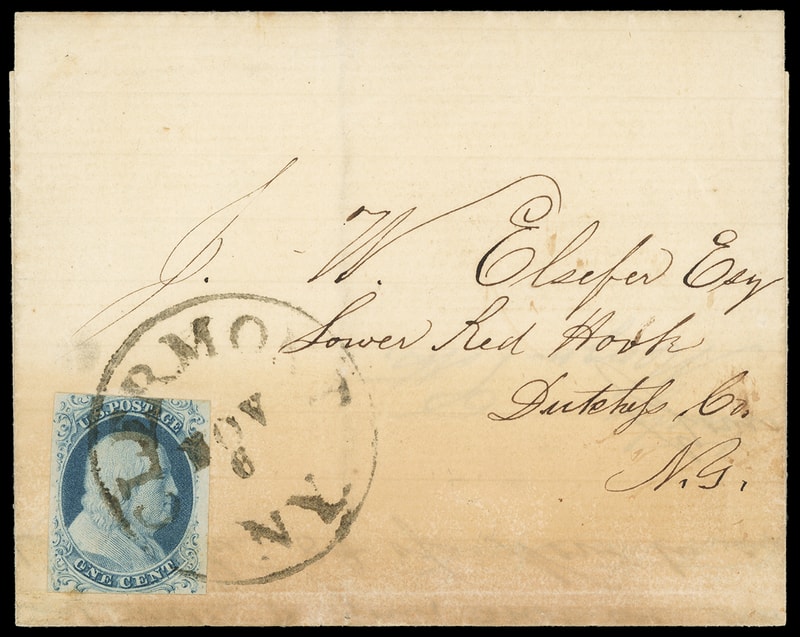 J. W. Elsefer Esq
Lower Red Hook
Dutchess Co.
N.Y.
CLERMONT
NOV
6
NY
U.S. POSTAGE
ONE CENT